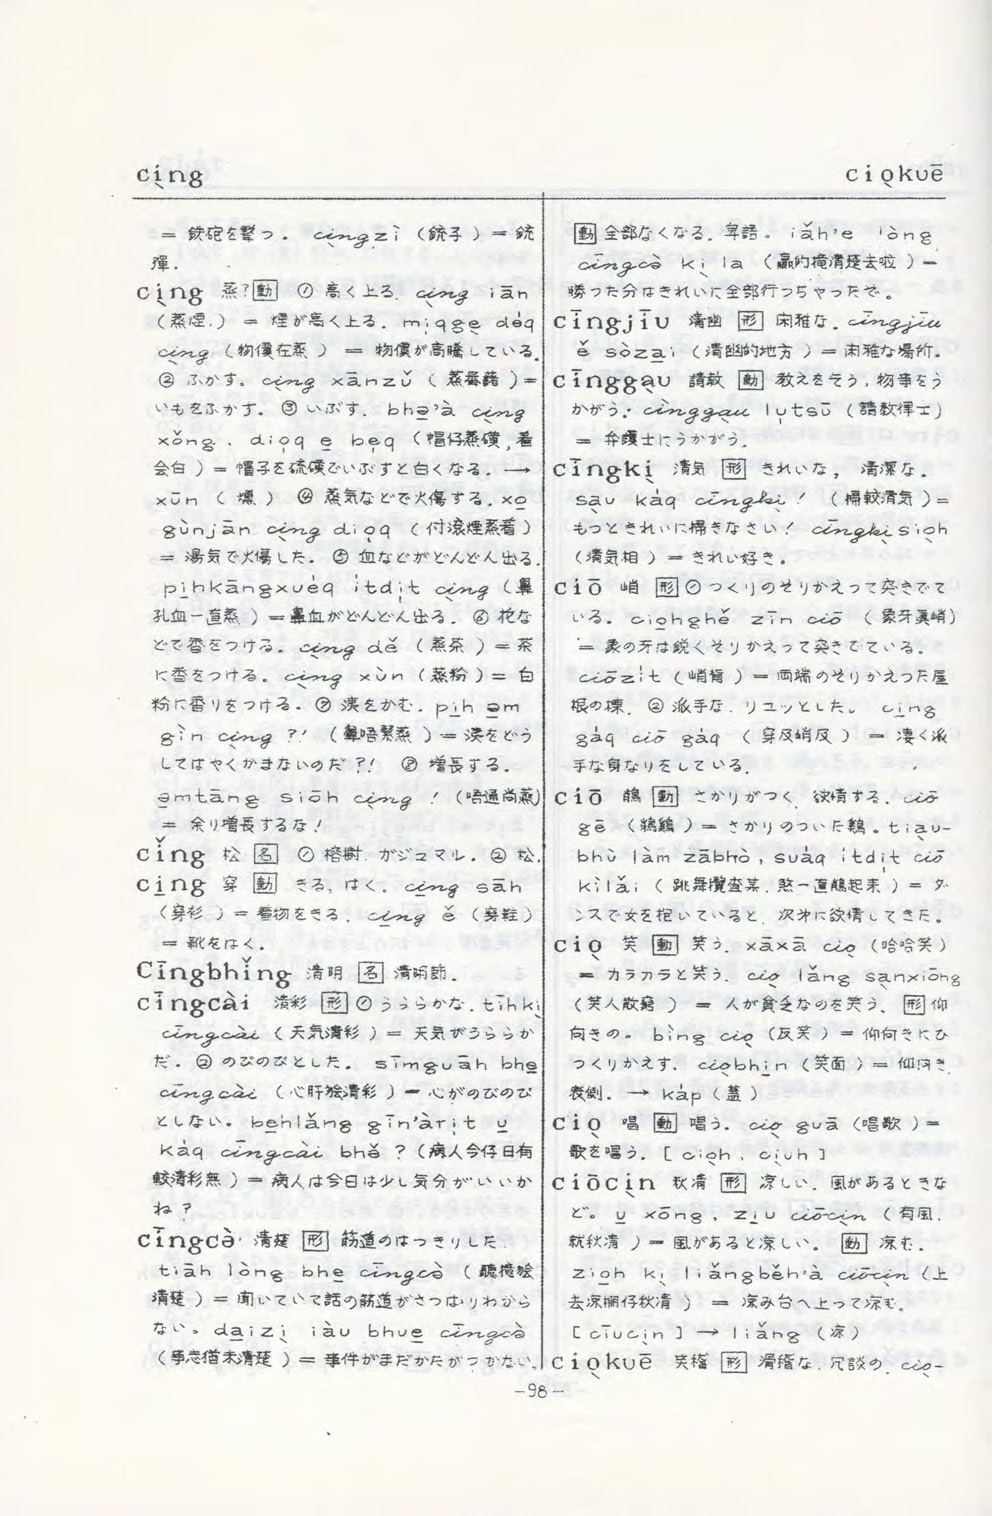 ci̖ng
cio̖kuē
= 鉄砲を撃つ. ci̖ngzì (銃子) = 銃
弾.
ci̖ng 蒸?[動] ① 高く上る. ci̖ng iān
(蒸煙.) = 煙が高く上る. mi̖qge̖ dêq
ci̖ng (物價在蒸) = 物價が高騰している.
② ふかす. ci̖ng xānzǔ (蒸蕃藷) =
いもをふかす. ③ いぶす. bhə̱'à ci̖ng
xǒng, dio̖q e̱ be̖q (帽仔蒸磺,着
会白) = 帽子を硫磺でいぶすと白くなる. ⟶
xūn (燻) ④ 蒸気などで火傷する. xo̖
gùnjān ci̖ng dio̖q (付滾煙蒸着)
= 湯気で火傷した. ⑤ 血などがどんどん出る.
pi̱hkāngxuéq ı̍tdı̍t ci̖ng (鼻
孔血一直蒸) = 鼻血がどんどん出る. ⑥ 花な
どで香をつける. ci̖ng dě (蒸茶) = 茶
に香をつける. ci̖ng xùn (蒸粉) = 白
粉に香りをつける. ⑦ 洟をかむ. pi̱h ə̱m
gìn ci̖ng ?! (鼻唔緊蒸) = 洟をどう
してはやくかまないのだ?! ⑧ 増長する.
ə̱mtāng siōh ci̖ng ! (唔通尚蒸)
= 余り増長するな!
cǐng 松 [名] ① 榕樹. ガジュマル. ② 松.
ci̱ng 穿 [動] きる, はく. ci̱ng sāh
(穿衫) = 着物をきる. ci̱ng ě (穿鞋)
= 靴をはく.
Cīngbhǐng 清明 [名] 清明節.
cīngcài 清彩 [形] ① うららかな. tīhki̖
cīngcài (天気清彩) = 天気がうららか
だ. ② のびのびとした. sīmguāh bhe̱
cīngcài (心肝獪清彩) = 心がのびのび
としない. be̱hlǎng gīn'àri̍t u̱
káq cīngcài bhě ? (病人今仔日有
較清彩無) = 病人は今日は少し気分がいいか
ね?
cīngcò 清楚 [形] 筋道のはっきりした.
tiāh lòng bhe̱ cīngcò (聽攏獪
清楚) = 聞いていて話の筋道がさっぱりわから
ない. da̱izi̖ iàu bhue̱ cīngcò
(事志猶未清楚) = 事件がまだかたがつかない.
[動] 全部なくなる. 卑語. iǎh'e lòng
cīngcò ki̖ la (贏的攏清楚去啦) =
勝った分はきれいに全部行っちゃったぞ.
cīngjīu 清幽 [形] 閑雅な. cīngjīu
ě sòza̱i (清幽的地方) = 閑雅な場所.
cìnggạu 請教 [動] 教えをこう, 物事をう
かがう. cìnggạu lu̍tsū (請教律士)
= 弁護士にうかがう.
cīngki̖ 清気 [形] きれいな, 清潔な.
sạu káq cīngki̖ ! (掃較清気) =
もっときれいに掃きなさい! cīngki̖sio̖h
(清気相) = きれい好き.
ciō 峭 [形] ① つくりのそりかえって突きでて
いる. cio̱hghě zīn ciō (象牙真峭)
= 象の牙は鋭くそりかえって突きでている.
ciōzít (峭脊) = 両端のそりかえった屋
根の棟. ② 派手な. リュッとした. ci̱ng
gáq ciō gáq (穿及峭及) = 凄く派
手な身なりをしている.
ciō 鵤 [動] さかりがつく. 欲情する. ciō
gē (鵤鶏) = さかりのついた鶏. tiạu-
bhù làm zābhò, suáq ı̍tdı̍t ciō
kìlǎi (跳舞攬查某. 煞一直鵤起来) = ダ
ンスで女を抱いていると, 次第に欲情してきた.
cio̖ 笑 [動] 笑う. xāxā cio̖ (哈哈笑)
= カラカラと笑う. cio̖ lǎng sạnxiōng
(笑人散窮) = 人が貧乏なのを笑う. [形] 仰
向きの. bìng cio̖ (反笑) = 仰向きにひ
っくりかえす. cio̖bhi̱n (笑面) = 仰向き.
表側. ⟶ káp (蓋)
cio̖ 唱 [動] 唱う. cio̖ guā (唱歌) =
歌を唱う. [cio̖h, ci̖uh]
ciōci̖n 秋凊 [形] 涼しい. 風があるときな
ど. u̱ xōng, zi̱u ciōci̖n (有風.
就秋凊) = 風があると涼しい. [動] 涼む.
zio̱h ki̖ liǎngběh'à ciōci̖n (上
去涼棚仔秋凊) = 涼み台へ上って涼む.
[cīuci̖n] ⟶ liǎng (涼)
cio̖kuē 笑詼 [形] 滑稽な. 冗談の. cio̖-
-98-